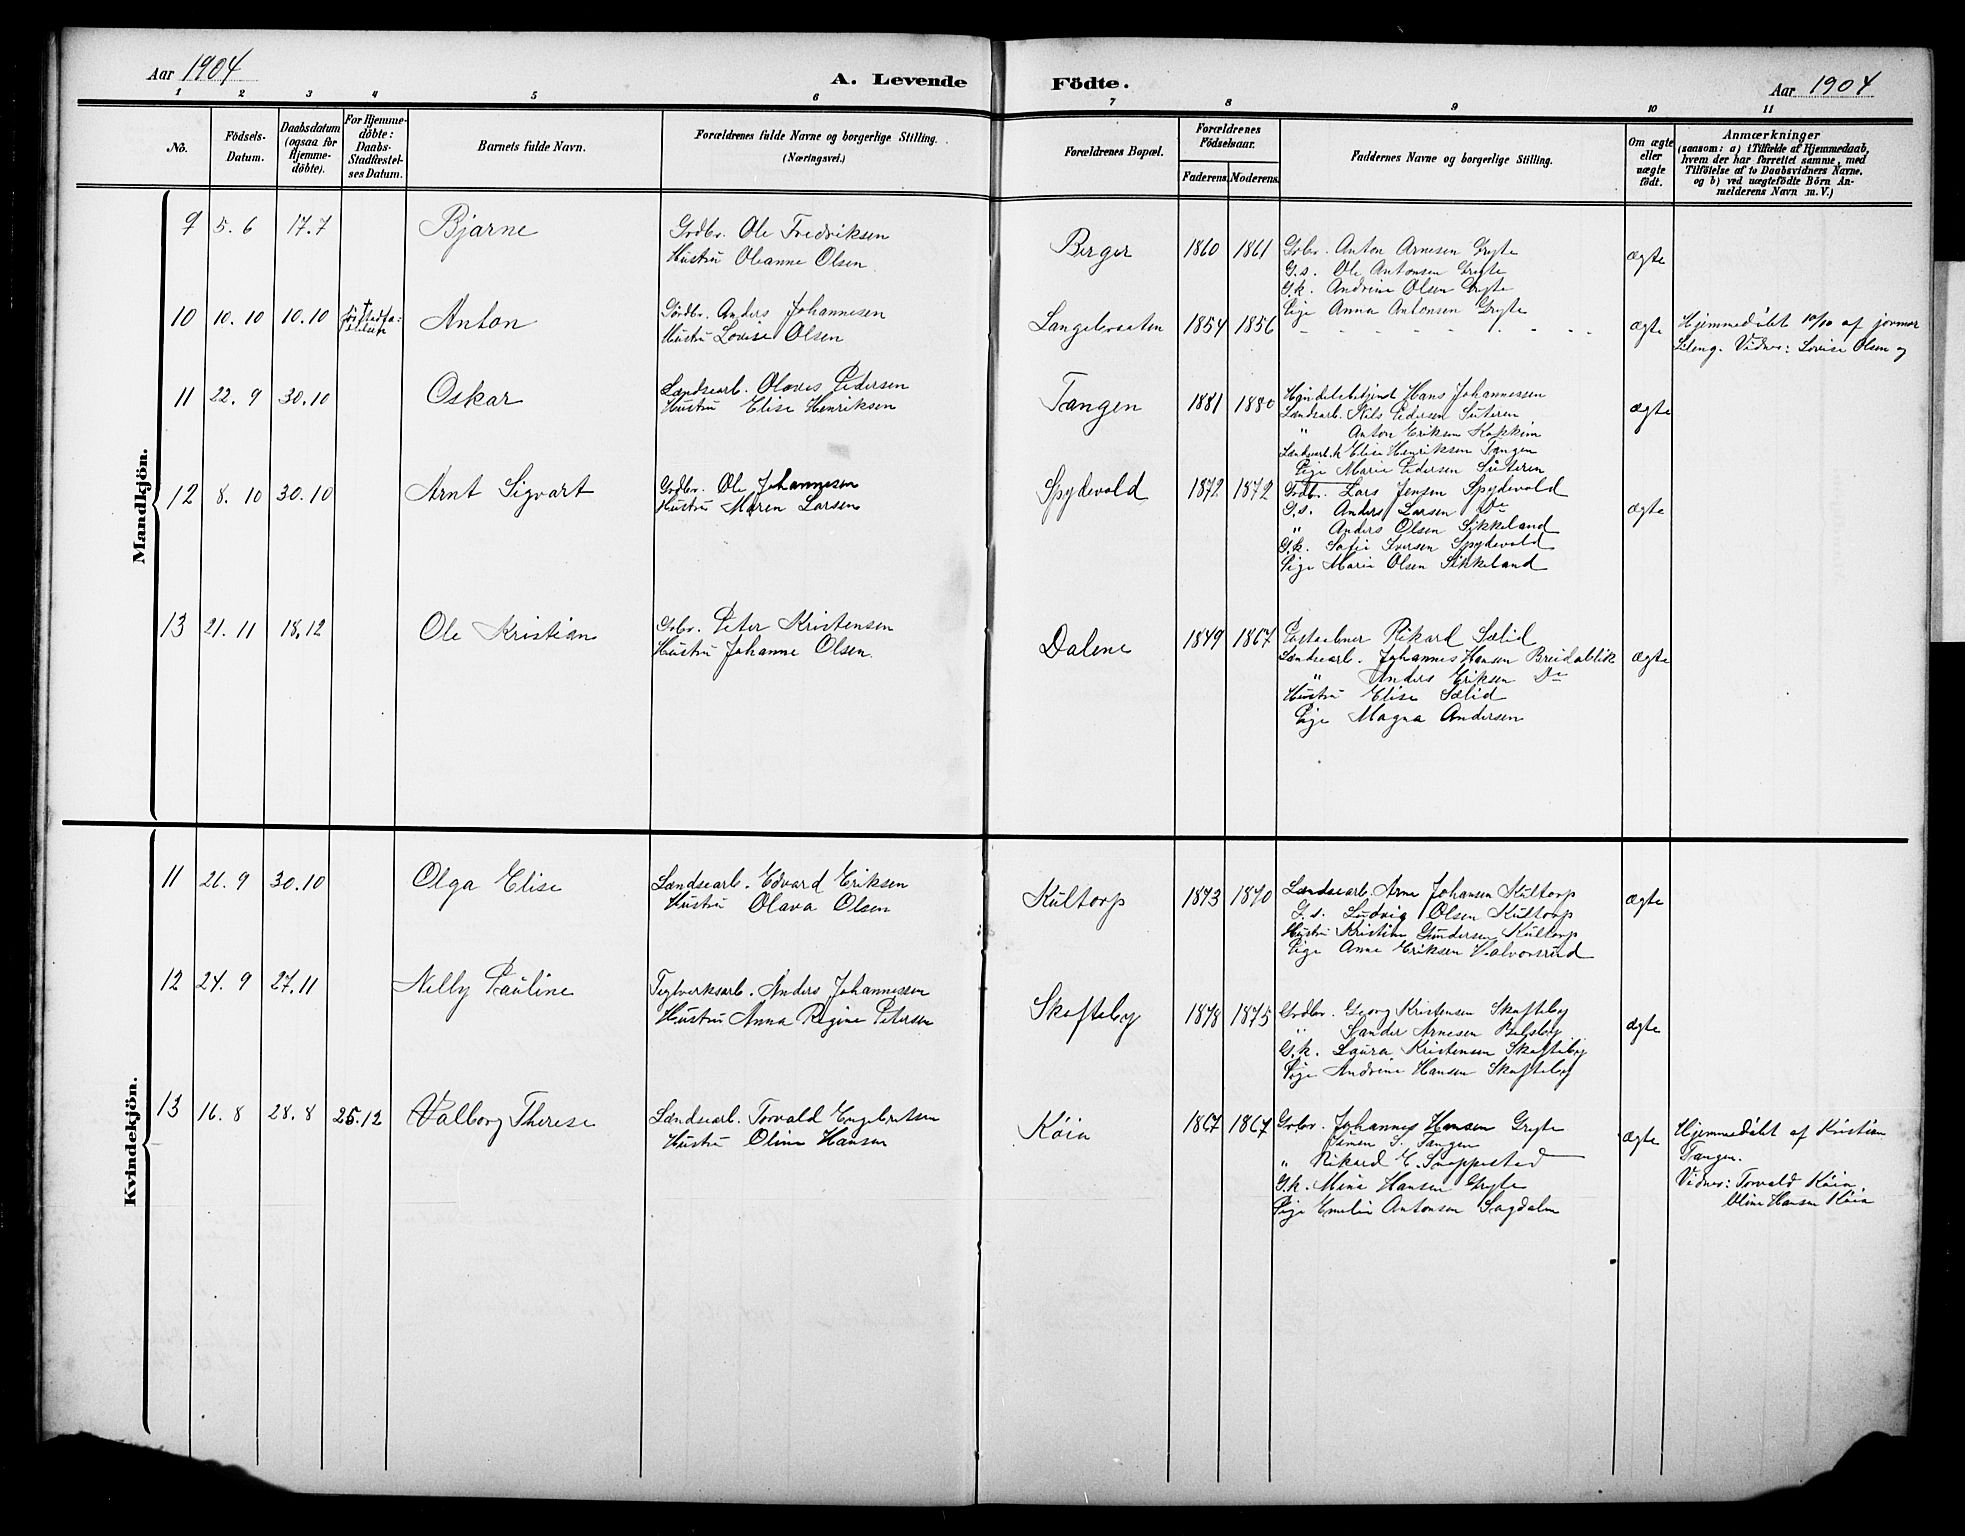 Aar 1904
A. Levende Födte.
Aar 1904
1 2 3 4 5 6 7 8 9 10 11
No.
Födsels-
Datum.
Daabsdatum
(ogsaa for
Hjemme-
döbte).
For Hjemme-
döbte:
Daabs-
Stadfæstel-
ses Datum.
Barnets fulde Navn.
Forældrenes fulde Navne og borgerlige Stilling.
(Næringsvei.)
Forældrenes Bopæl.
Forældrenes
Födselsaar.
Faderens.
Moderens.
Faddernes Navne og borgerlige Stilling.
Om ægte
eller
uægte
födt.
Anmærkninger
(saasom: a) i Tilfælde af Hjemmedaab,
hvem der har forrettet samme, med
Tilföielse af to Daabsvidners Navne,
og b) ved uægtefödte Börn An-
melderens Navn m. V.)
Mandkjön.
9 5.6 17.7 Bjarne
Grdbr. Ole Fredriksen
Hustru Oleanne Olsen
Berger 1860 1861
Grbr. Anton Arnesen Gryte
G.s. Ole Antonsen Gryte
G.k. Andrine Olsen Gryte
Pige Anna Antonsen Gryte
ægte
10 10.10 10.10 Anton
Gårdbr. Anders Johannesen
Hustru Lovise Olsen
Langebraaten 1854 1856
ægte
Hjemmedøbt 10/10 af jormor
Vidner: Lovise Olsen og
11 22.9 30.10 Oskar
Landsearb. Olaves Pedersen
Hustru Elise Henriksen
Tangen 1881 1880
Hans Johannessen
Landsarb. Nils Pedersen Suteren
" Anton Eriksen
Landsarb.k Elise Henriksen Tangen
Pige Marie Pedersen Suteren
ægte
12 8.10 30.10 Arnt Sigvart
Grdbr. Ole Johannesen
Hustru Maren Larsen
Spydevold 1872 1872
Grdb. Lars Jensen Spydevold
G.s. Anders Larsen Do
" Anders Olsen Sikkeland
G.k. Sofie Iversen Spydevold
Pige Marie Olsen Sikkeland
ægte
13 21.11 18.12 Ole Kristian
Grbr. Peter Kristensen
Hustru Johanne Olsen
Dalene 1849 1867
Postaabner Rikard Sælid
Landsearb. Johannes Hansen Breidablik
" Anders Eriksen Do
Hustru Elise Sælid
Pige Magna Andersen
ægte
Kvindekjön.
11 21.9 30.10 Olga Elise
Landsearb. Edvard Eriksen
Hustru Olava Olsen
Kultorp 1873 1870
Landsearb. Arne Johansen Kultorp
G.s. Ludvig Olsen Kultorp
Hustru Kristine Gundersen Kultorp
Pige Anne Eriksen Halvorsrud
ægte
12 24.9 27.11 Nelly Pauline
Teglverksarb. Anders Johannessen
Hustru Anna Regine Petersen
Skofteby 1878 1875
Grdbr. Georg Kristensen Skofteby
" Sander Arnesen Belsby
G.k. Laura Kristensen Skofteby
Pige Andrine Hansen Skofteby
ægte
13 16.8 28.8 25.12 Valborg Therese
Landsearb. Torvald Engebretsen
Hustru Oline Hansen
Køia 1867 1867
Grbr. Johannes Hansen Gryte
Simen S. Tangen
" Rikard E. Snoppestad
G.k. Mina Hansen Gryte
Pige Emelie Antonsen Sagdalen
ægte
Hjemmedøbt af Kristian
Tangen.
Vidner: Torvald Køia,
Oline Hansen Køia